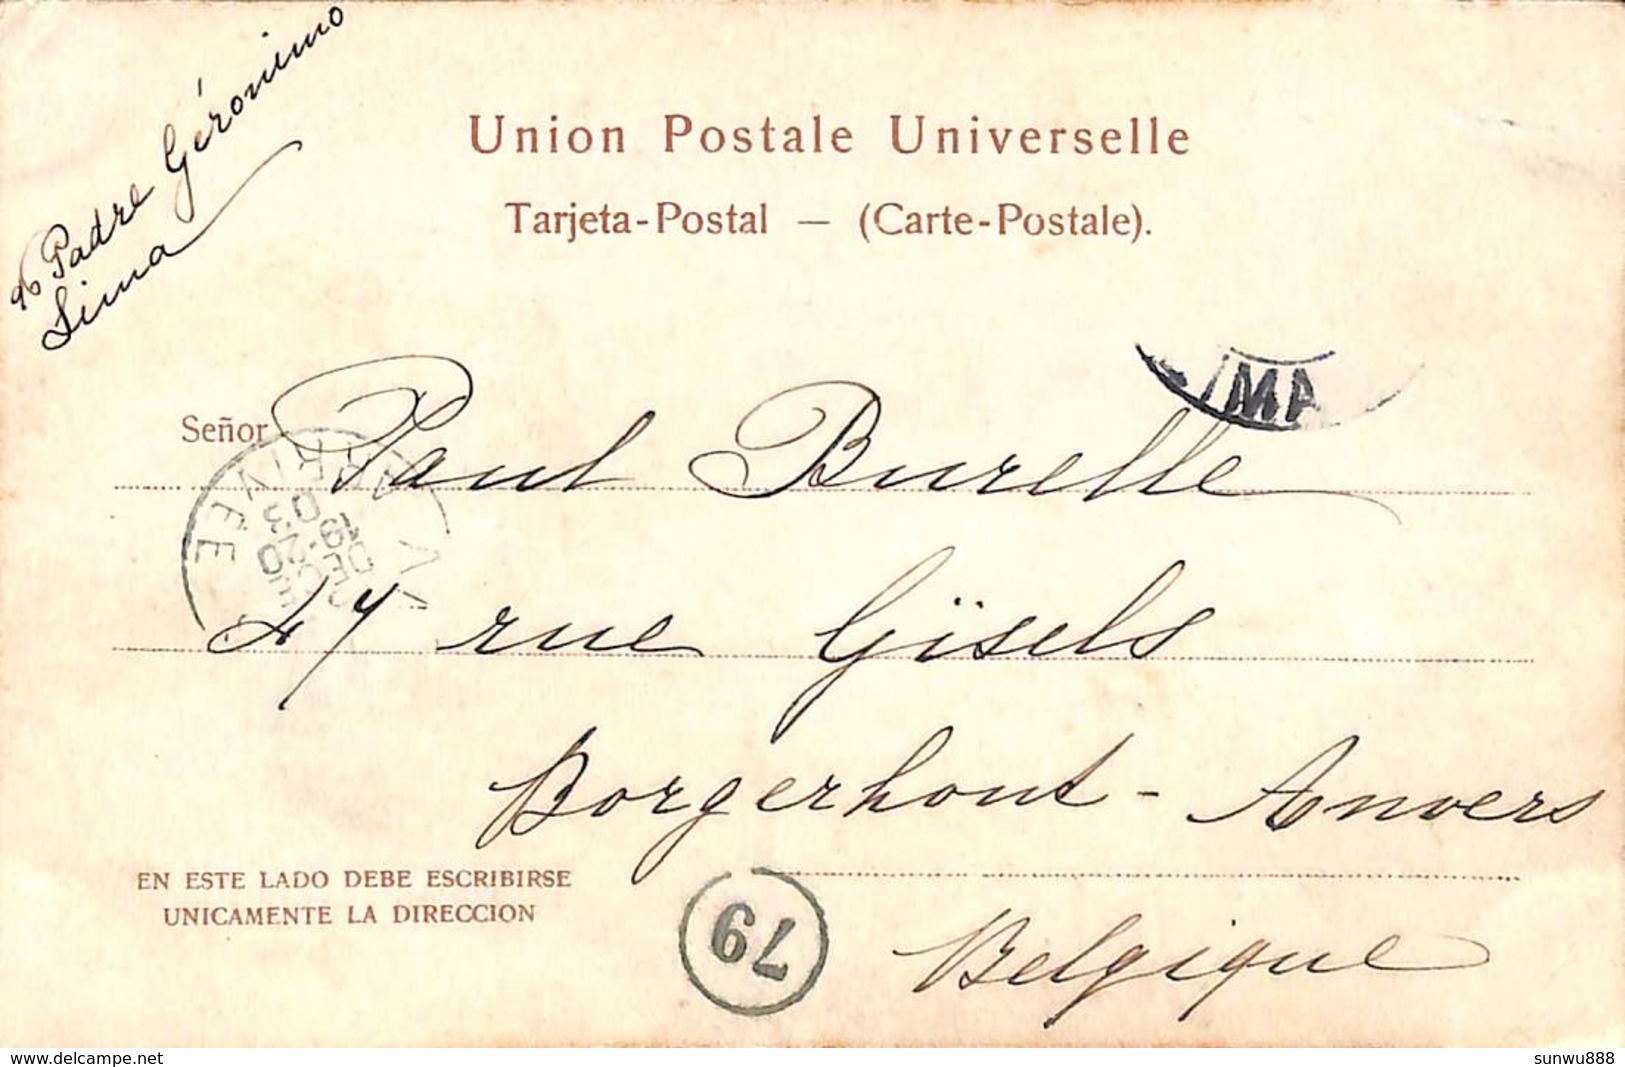 96 Padre Géronimo
Lima
Union Postale Universelle
Tarjeta-Postal — (Carte-Postale).
IMA
Señor Paul Burelle
ARRIVÉE
19-20
DEC
03
47 rue Gïsels
Borgerhout - Anvers
EN ESTE LADO DEBE ESCRIBIRSE
UNICAMENTE LA DIRECCION
79
Belgique
www.delcampe.net
sunwu888